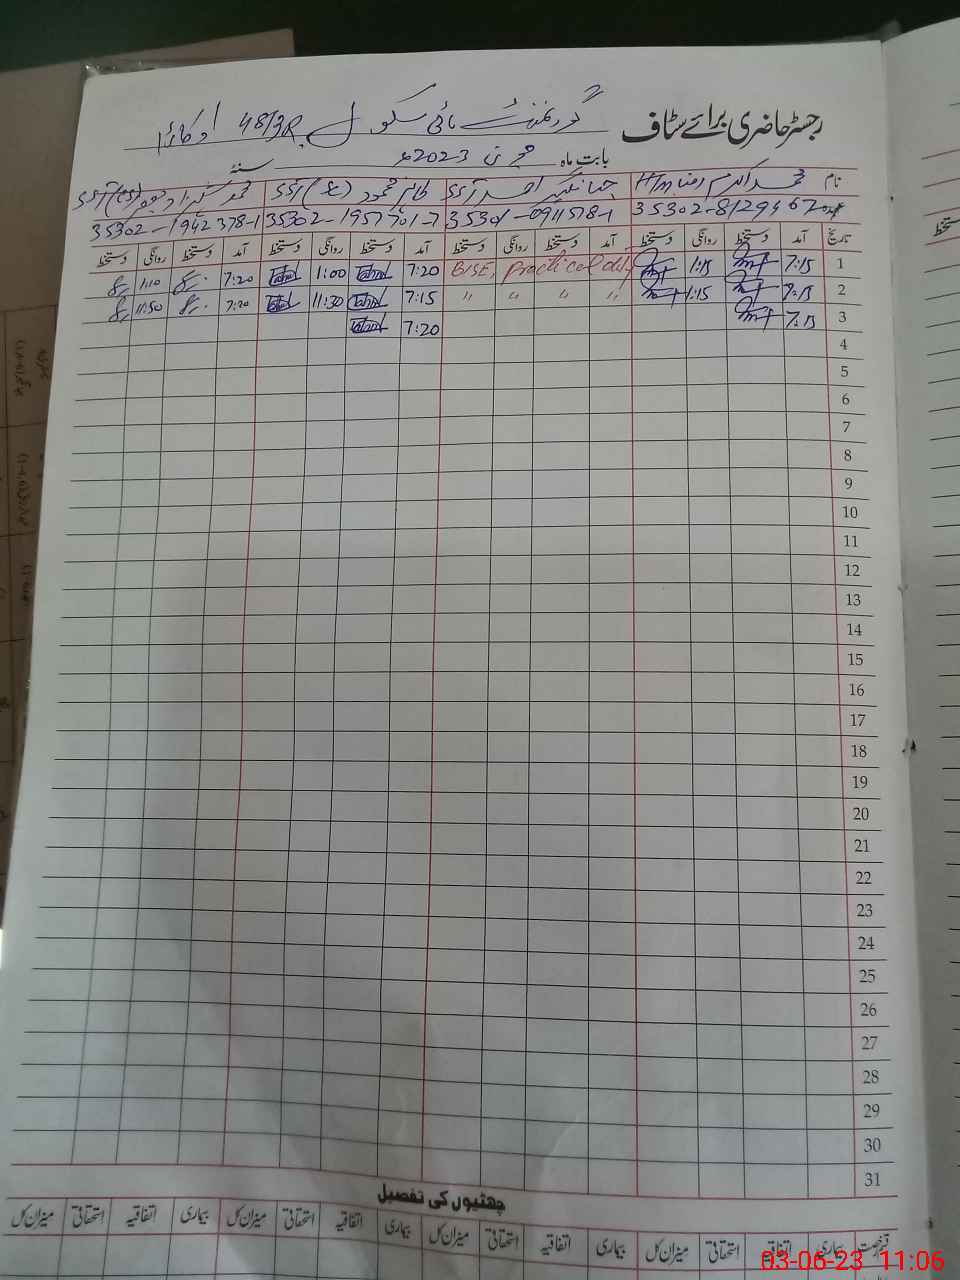 رجسٹر حاضری برائے سٹاف گورنمنٹ ہائی سکول 48/3R اوکاڑا
بابت ماہ جون 2023ء سنۂ
نام محمد اکرم رضا H/m جہانگیر احمد SST طاہر محمود SST محمد شہزاد SST
35302-8129467 35301-0911578-1 35302-1957701-7 35302-1942378-1
تاریخ آمد دستخط روانگی دستخط آمد دستخط روانگی دستخط آمد دستخط روانگی دستخط آمد دستخط روانگی دستخط
1 7:15 1:15 BISE, Practical duty 7:20 1:00 7:20 1:10
2 7:15 1:15 " " " " 7:15 11:30 7:20 11:50
3 7:15 7:20
4
5
6
7
8
9
10
11
12
13
14
15
16
17
18
19
20
21
22
23
24
25
26
27
28
29
30
31
چھٹیوں کی تفصیل
قسم رخصت بیماری اتفاقیہ استحقاقی میزان کل بیماری اتفاقیہ استحقاقی میزان کل بیماری اتفاقیہ استحقاقی میزان کل بیماری اتفاقیہ استحقاقی میزان کل
03-06-23 11:06